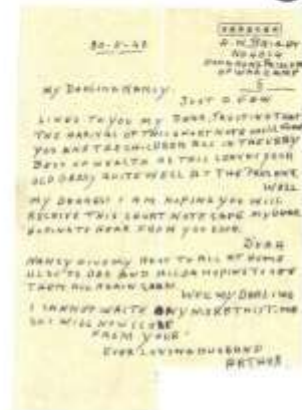 30-5-43
No 4014
HONG KONG PRISONER
OF WAR CAMP
MY DARLING NANCY.
JUST A FEW
LINES TO YOU MY DEAR, TRUSTING THAT
THE ARRIVAL OF THIS SHORT NOTE WILL FIND
YOU AND THE CHILDREN ALL IN THE VERY
BEST OF HEALTH AS THIS LEAVES YOUR
OLD DADDY QUITE WELL AT THE PRESENT.
WELL
MY DEAREST I AM HOPING YOU WILL
RECEIVE THIS SHORT NOTE SAFE MY DEAR
HOPING TO HEAR FROM YOU SOON.
DEAR
NANCY GIVE MY BEST TO ALL AT HOME
ALSO TO DAD AND HILDA HOPING TO SEE
THEM ALL AGAIN SOON.
WELL MY DARLING
I CANNOT WRITE ANY MORE THIS TIME
SO I WILL NOW CLOSE
FROM YOUR
EVER LOVING HUSBAND
ARTHUR